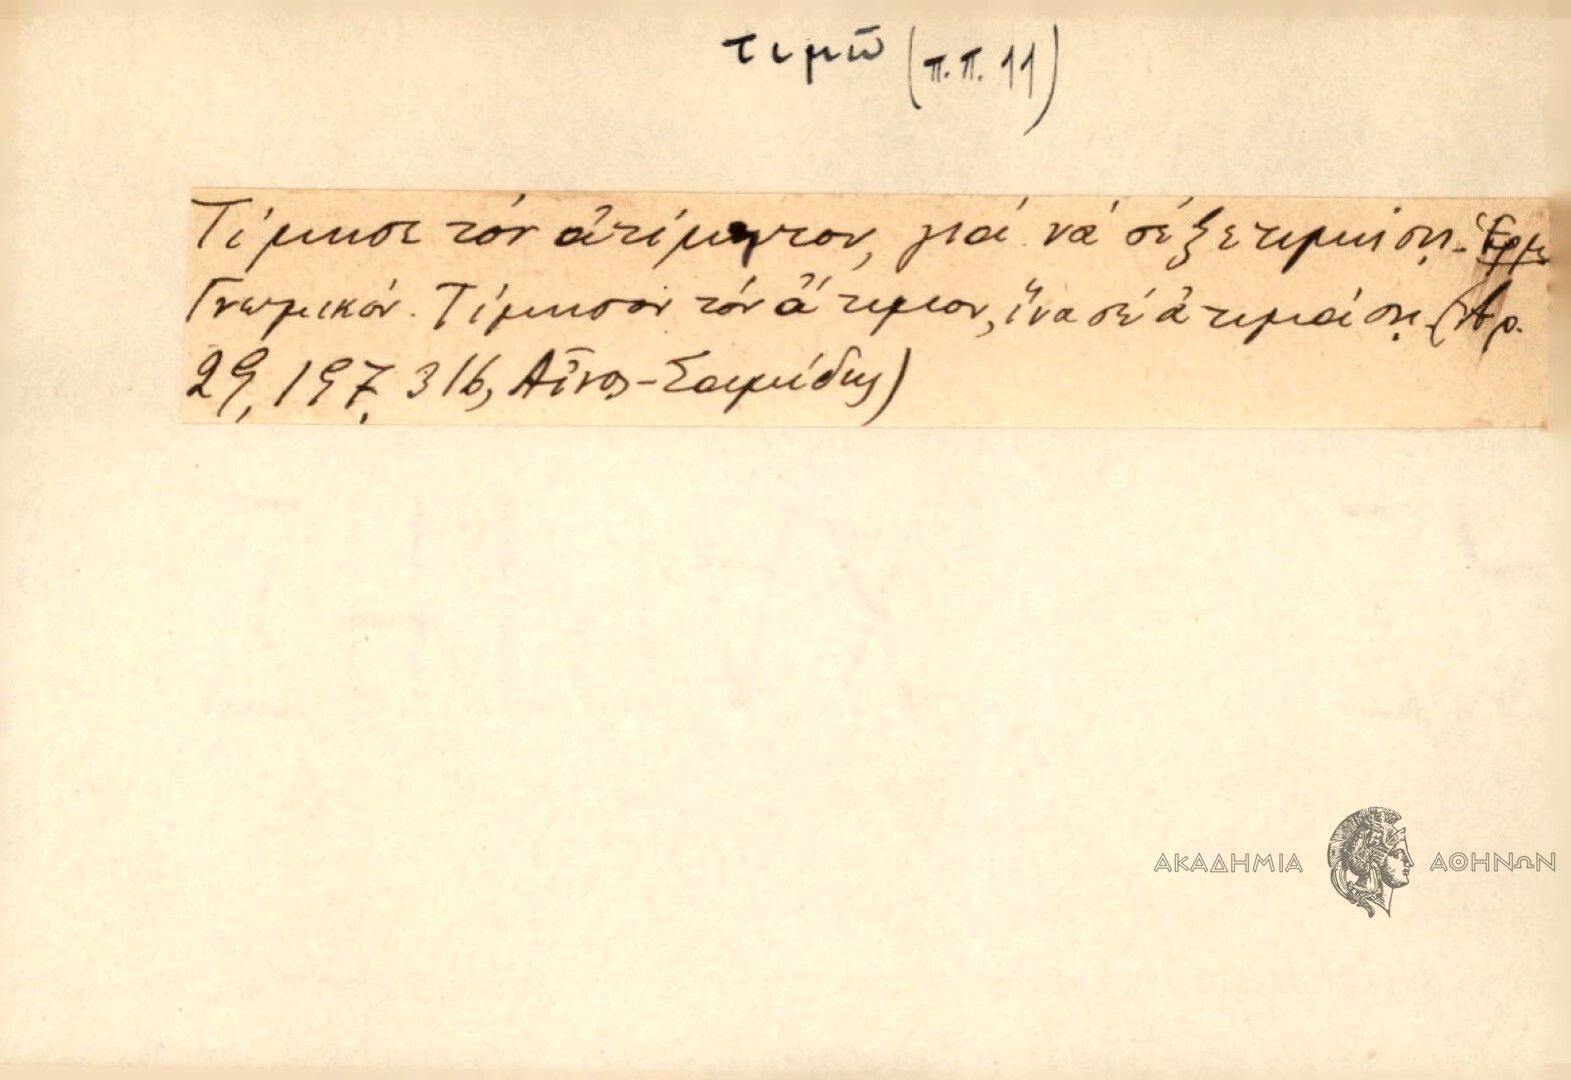 τιμῶ (π.π. 11)
Τίμησε τόν ἀτίμητον, γιά νά σέ ξετιμήσῃ. Ἑρμ
Γνωμικόν. Τίμησον τόν ἄτιμον, ἵνα σέ ἀτιμάσῃ. (Ἀρ.
29, 197, 316, Αἶνος-Σαμίδης)
ΑΚΑΔΗΜΙΑ ΑΘΗΝΩΝ